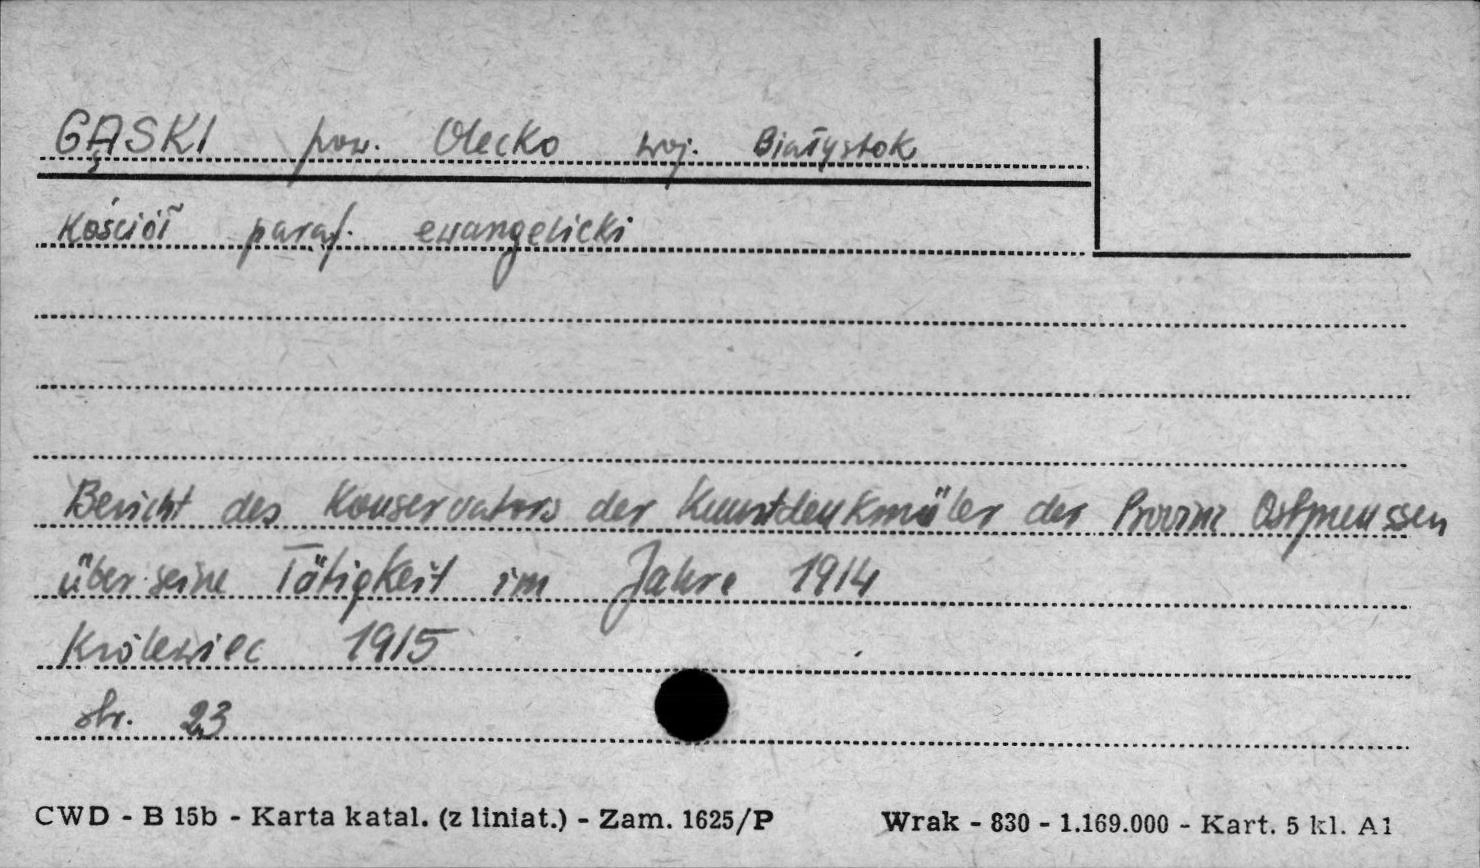 GĄSKI pow. Olecko woj. Białystok
Kościół paraf. ewangelicki
Bericht des Konservators der Kunstdenkmäler der Provinz Ostpreussen
über seine Tätigkeit im Jahre 1914
Królewiec 1915
str. 23
CWD - B 15b - Karta katal. (z liniat.) - Zam. 1625/P Wrak - 830 - 1.169.000 - Kart. 5 kl. A1